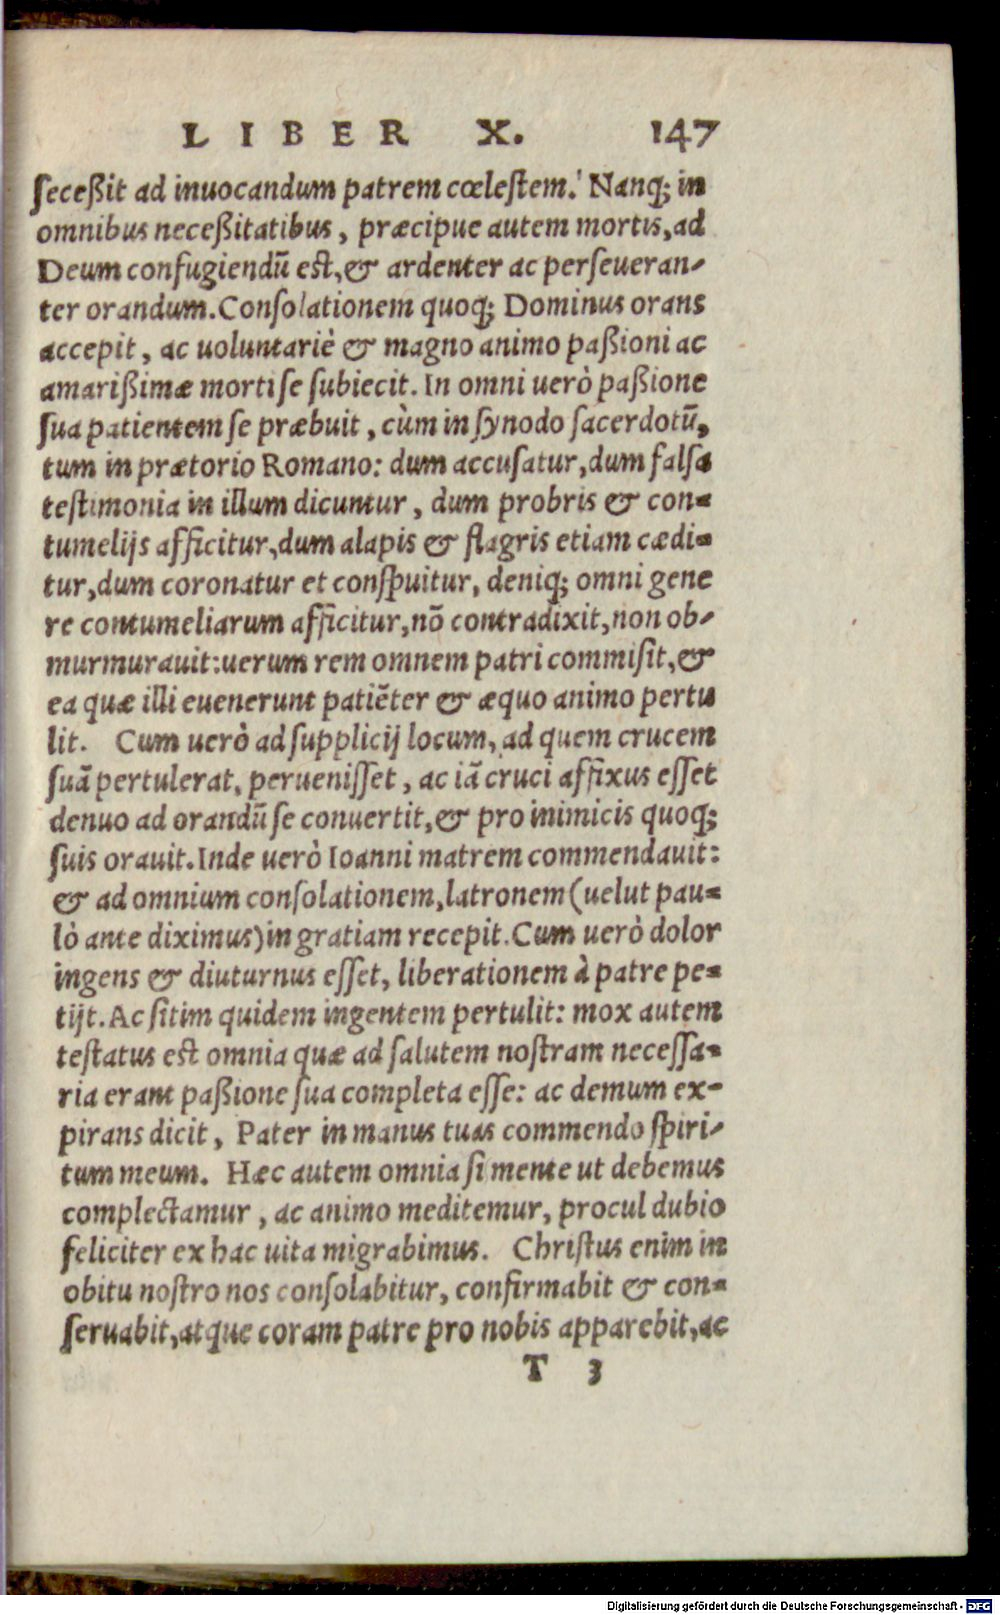 LIBER X. 147
ſeceßit ad inuocandum patrem cœleſtem. Nanq; in
omnibus neceßitatibus, præcipue autem mortis, ad
Deum confugiendū eſt, & ardenter ac perſeueran-
ter orandum. Conſolationem quoq; Dominus orans
accepit, ac uoluntariè & magno animo paßioni ac
amarißimæ morti ſe ſubiecit. In omni uerò paßione
ſua patientem ſe præbuit, cùm in ſynodo ſacerdotū,
tum in prætorio Romano: dum accuſatur, dum falſa
teſtimonia in illum dicuntur, dum probris & con-
tumelijs afficitur, dum alapis & flagris etiam cædi-
tur, dum coronatur et conſpuitur, deniq; omni gene
re contumeliarum afficitur, nō contradixit, non ob-
murmurauit: uerum rem omnem patri commiſit, &
ea quæ illi euenerunt patiēter & æquo animo pertu
lit. Cum uerò ad ſupplicij locum, ad quem crucem
ſuā pertulerat, perueniſſet, ac iā cruci affixus eſſet
denuo ad orandū ſe conuertit, & pro inimicis quoq;
ſuis orauit. Inde uerò Ioanni matrem commendauit:
& ad omnium conſolationem, latronem (uelut pau-
lò ante diximus) in gratiam recepit. Cum uerò dolor
ingens & diuturnus eſſet, liberationem à patre pe-
tijt. Ac ſitim quidem ingentem pertulit: mox autem
teſtatus eſt omnia quæ ad ſalutem noſtram neceſſa-
ria erant paßione ſua completa eſſe: ac demum ex-
pirans dicit, Pater in manus tuas commendo ſpiri-
tum meum. Hæc autem omnia ſi mente ut debemus
complectamur, ac animo meditemur, procul dubio
feliciter ex hac uita migrabimus. Chriſtus enim in
obitu noſtro nos conſolabitur, confirmabit & con-
ſeruabit, atque coram patre pro nobis apparebit, ac
T 3
Digitalisierung gefördert durch die Deutsche Forschungsgemeinschaft - DFG